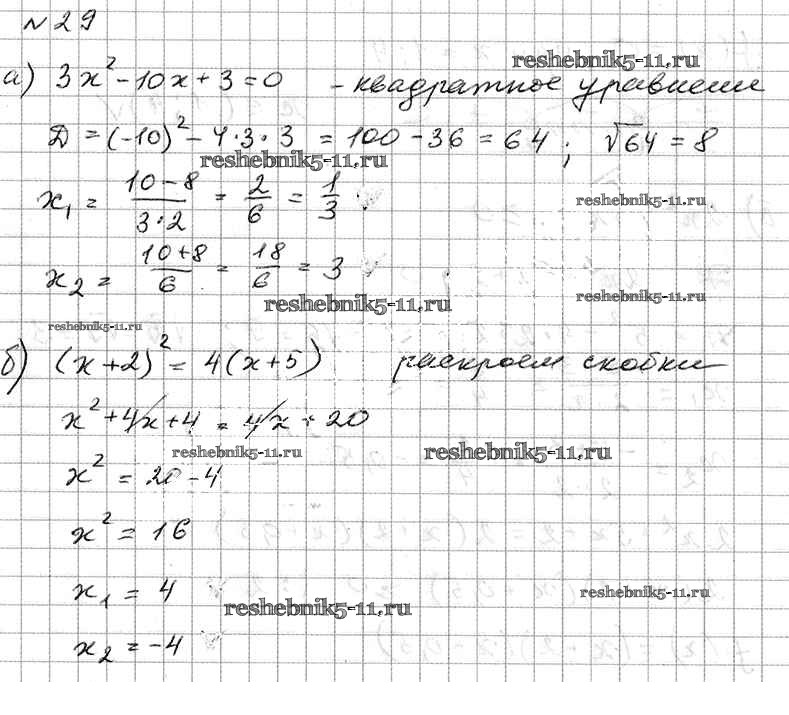 № 29
reshebnik5-11.ru
а) 3x² - 10x + 3 = 0 - квадратное уравнение
D = (-10)² - 4·3·3 = 100 - 36 = 64 ; √64 = 8
reshebnik5-11.ru
x₁ = (10 - 8)/(3·2) = 2/6 = 1/3 ;
reshebnik5-11.ru
x₂ = (10+8)/6 = 18/6 = 3
reshebnik5-11.ru
reshebnik5-11.ru
reshebnik5-11.ru
б) (x+2)² = 4(x+5) раскроем скобки
x² + 4x + 4 = 4x + 20
reshebnik5-11.ru
reshebnik5-11.ru
x² = 20 - 4
x² = 16
x₁ = 4
reshebnik5-11.ru
reshebnik5-11.ru
x₂ = -4